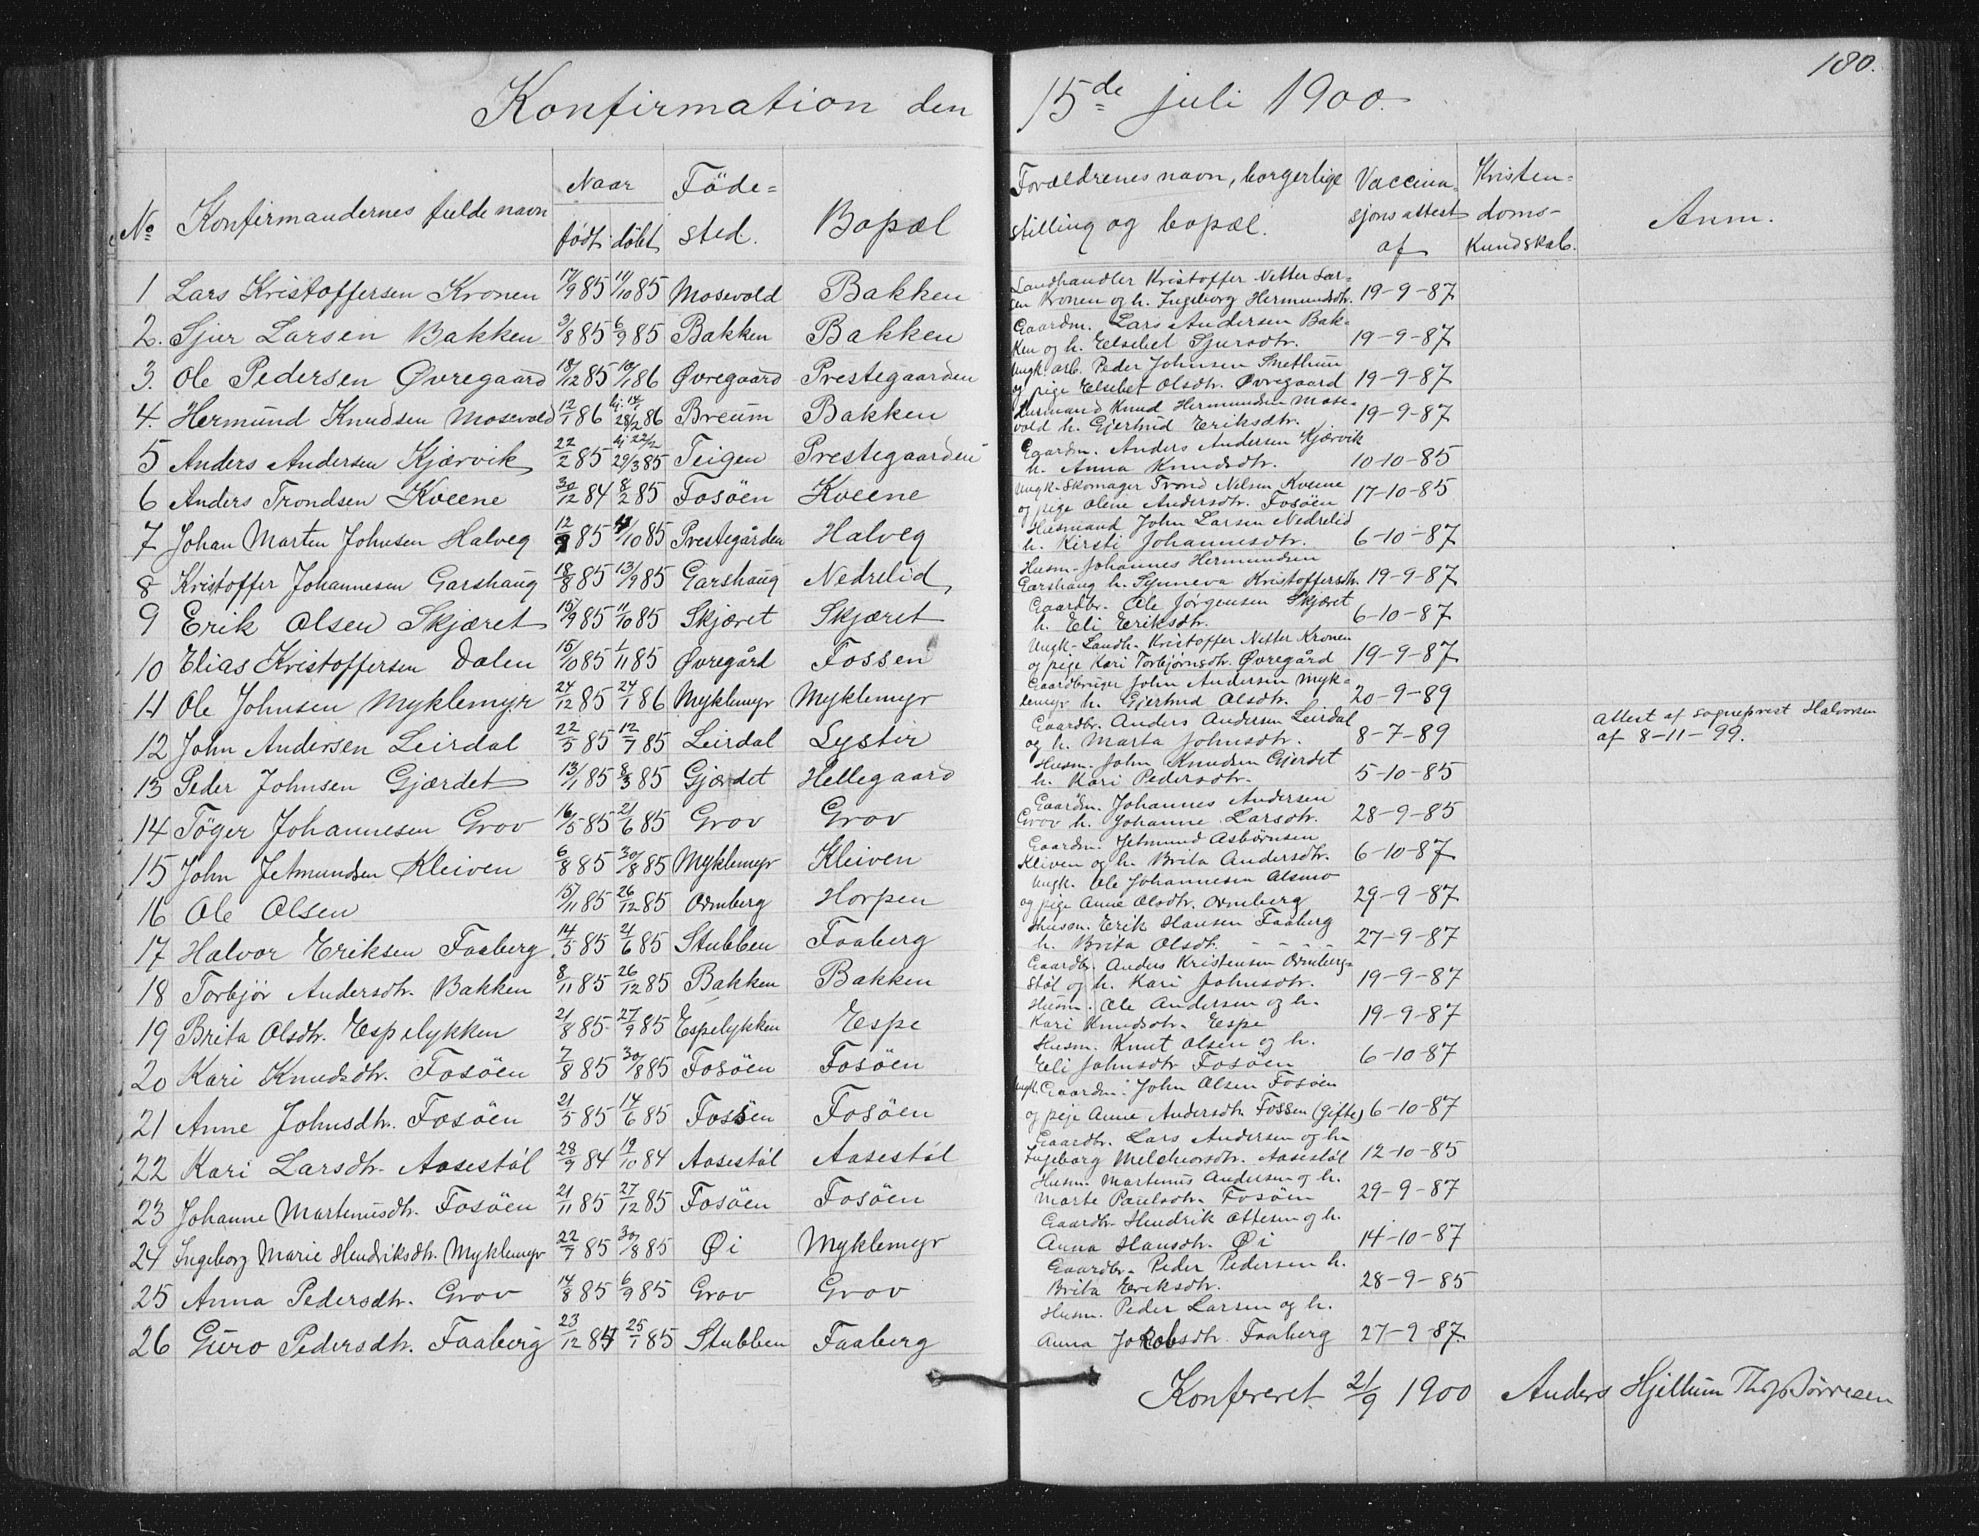 180.
Konfirmation den 15de juli 1900.
No Konfirmandernes fulde navn Naar födt. döbt Föde= sted. Bopæl Forældrenes navn, borgerlige stilling og bopæl. Vaccina= sjonsattest af Kristen= doms- Kundskab. Anm.
1 Lars Kristoffersen Kronen 17/9 85 11/10 85 Mosevold Bakken Landhandler Kristoffer Netter Lar=
sen Kronen og h. Ingeborg Hermundsdtr. 19-9-87
2. Sjur Larsen Bakken 3/8 85 6/9 85 Bakken Bakken Gaardm. Lars Andersen Bak-
ken og h. Elsebet Sjursdtr. 19-9-87
3. Ole Pedersen Øvregaard 18/12 85 10/1 86 Øvregaard Prestegaarden Ungk. arb. Peder Johnsen Snethun
og pige Elsebet Olsdtr. Øvregaard 19-9-87
4. Hermund Knudsen Mosevold 12/1 86 hj. 17/1 28/2 86 Breum Bakken Husmand Knud Hermundsen Mose-
vold h. Gjertrud Eriksdtr. 19-9-87
5 Anders Andersen Kjærvik 22/2 85 hj 22/2 29/3 85 Teigen Prestegaarden Gaardm. Anders Andersen Kjærvik
h. Anna Knudsdtr. 10-10-85
6 Anders Trondsen Kveene 30/12 84 8/2 85 Fosöen Kveene Ungk-Skomager Trond Nilsen Kveene
og pige Oline Andersdtr. Fosöen 17-10-85
7 Johan Marten Johnsen Halveg 12/9 85 11/10 85 Prestegården Halveg Husmand John Larsen Nedrelid
h. Kirsti Johannesdtr. 6-10-87
8 Kristoffer Johannesen Garshaug 18/8 85 13/9 85 Garshaug Nedrelid Husm- Johannes Hermundsen
Garshaug h. Synneva Kristoffersdtr. 19-9-87
9 Erik Olsen Skjæret 15/9 85 11/10 85 Skjæret Skjæret Gaardbr. Ole Jörgensen Skjæret
h. Eli Eriksdtr. 6-10-87
10 Elias Kristoffersen Dalen 15/10 85 1/11 85 Øvregård Fossen Ungk-Landh- Kristoffer Netter Kronen
og pige Kari Torbjörnsdtr. Øvregård 19-9-87
11 Ole Johnsen Myklemyr 24/12 85 24/1 86 Myklemyr Myklemyr Gaardbruger John Andersen Myk-
lemyr h. Gjertrud Olsdtr. 20-9-89
12 John Andersen Leirdal 22/5 85 12/7 85 Leirdal Lystir Gaardbr. Anders Andersen Leirdal
og h. Marta Johnsdtr. 8-7-89 Attest af sogneprest Halvorsen
af 8-11-99.
13 Peder Johnsen Gjærdet 13/1 85 8/3 85 Gjærdet Hellegaard Husm. John Knudsen Gjerdet
h. Kari Pedersdtr. 5-10-85
14 Töger Johannesen Grov 16/5 85 21/6 85 Grov Grov Gaardm. Johannes Andersen
Grov h. Johanne Larsdtr. 28-9-85
15 John Jetmundsen Kleiven 6/8 85 30/8 85 Myklemyr Kleiven Gaardm. Jetmund Asbörnsen
Kliven og h. Brita Andersdtr. 6-10-87
16 Ole Olsen 15/11 85 26/12 85 Ormberg Horpen Ungk. Ole Johannesen Alsmo
og pige Anne Olsdtr. Ormberg 29-9-87
17 Halvor Eriksen Faaberg 14/5 85 21/6 85 Stubben Faaberg Husm. Erik Hansen Faaberg
h. Brita Olsdt. - - - - 27-9-87
18 Torbjör Andersdtr. Bakken 8/11 85 26/12 85 Bakken Bakken Gaardbr. Anders Kristensen Ormberg-
stöl og h. Kari Johnsdtr. 19-9-87
19 Brita Olsdtr. Espelykken 21/8 85 27/9 85 Espelykken Espe Husm. Ole Andersen og h.
Kari Knudsdtr. Espe 19-9-87
20 Kari Knudsdtr. Fosöen 7/8 85 30/8 85 Fosöen Fosöen Husm. Knut Olsen og h.
Eli Johnsdtr Fosöen 6-10-87
21 Anne Johnsdtr. Fosöen 21/5 85 14/6 85 Fossen Fosöen Ungk. Gaardm. John Olsen Fosöen
og pige Anne Andersdtr. Fossen (gifte) 6-10-87
22 Kari Larsdtr. Aasestöl 28/9 84 19/10 84 Aasestöl Aasestöl Gaardbr. Lars Andersen og h.
Ingeborg Melchiorsdtr. Aasestöl 12-10-85
23 Johanne Martenusdtr. Fosöen 21/11 85 27/12 85 Fosöen Fosöen Husm. Martenus Andersen og h.
Marte Paulsdtr. Fosöen 29-9-87
24 Ingeborg Marie Hendriksdtr. Myklemyr 22/7 85 30/8 85 Øi Myklemyr Gaardbr. Hendrik Ottesen og h.
Anna Hansdtr. Øi 14-10-87
25 Anna Pedersdtr. Grov 14/8 85 6/9 85 Grov Grov Gaardbr. Peder Pedersen h.
Brita Eriksdtr. 28-9-85
26 Guro Pedersdtr. Faaberg 23/12 84 25/1 85 Stubben Faaberg Husm. Peder Larsen og h.
Anna Jakobsdtr. Faaberg 27-9-87.
Konfereret 21/9 1900 Anders Hjellum Börresen